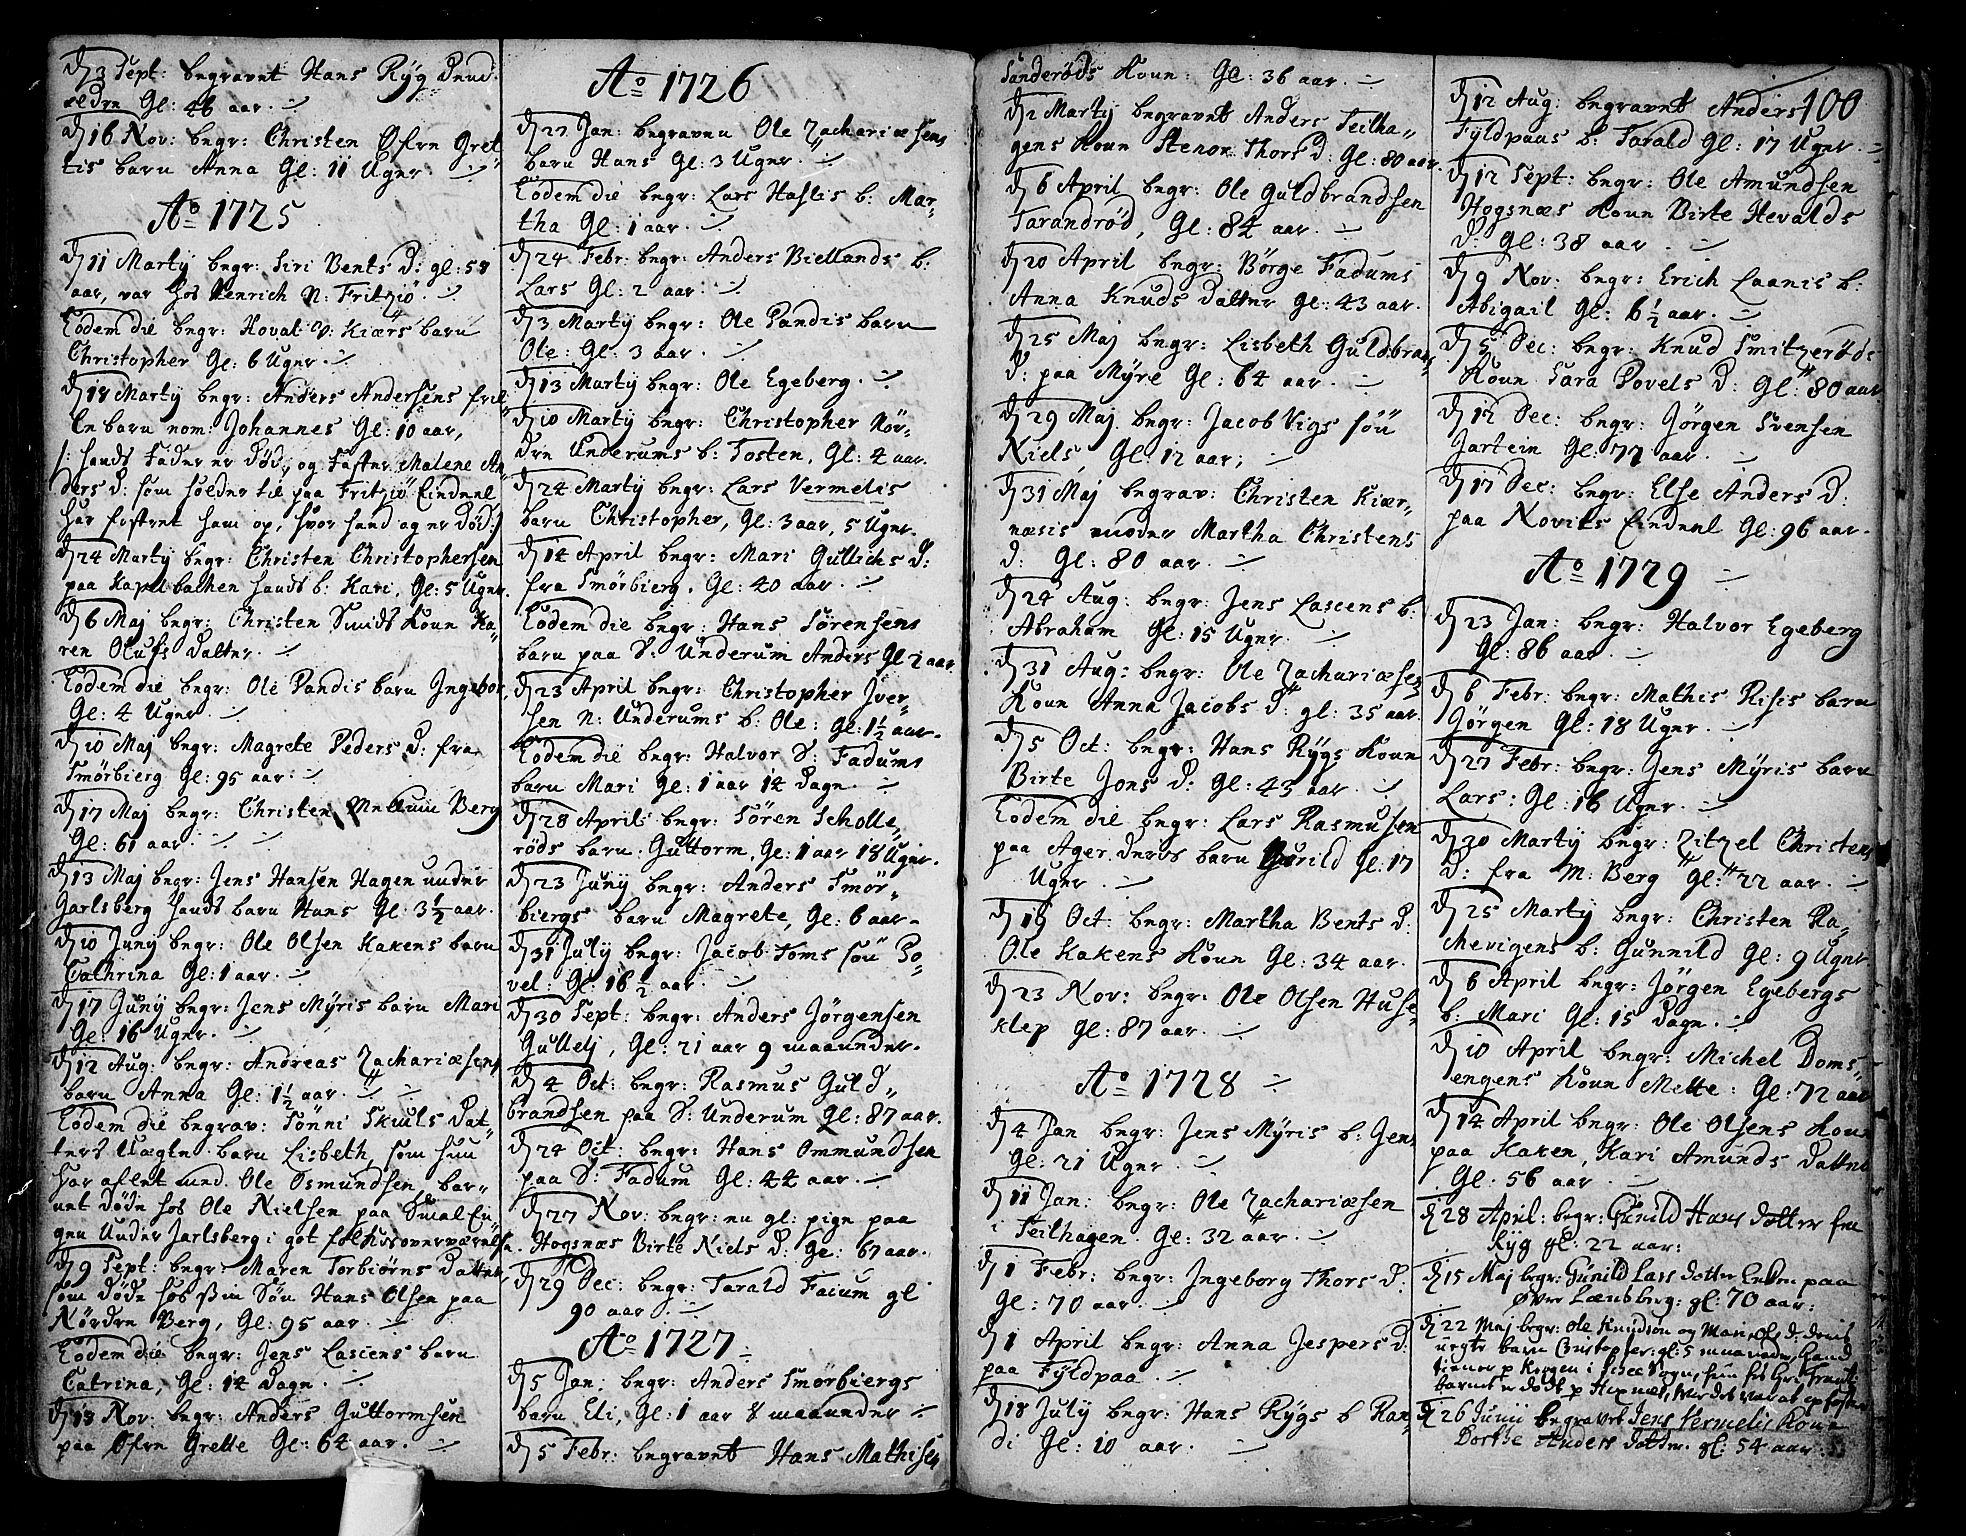 d 3 Sept: begravet Hans Ryg Dend
eldre Gl: 46 aar.
d 16 Nov: begr: Christen Øfre Gret„
tis barn Anna Gl: 11 Uger.
Ao 1725
d 11 Marty begr: Siri Bents D: gl: 58
aar, var hos Henrich N: Fritzjö.
Eodem die begr: Hovat Kiærs barn
Christopher Gl: 6 Uger.
d 18 Marty begr: Anders Andersens
barn nom: Johannes Gl: 10 aar,
hands Fader er död, og Faster Malene An„
ders D: som holder til paa Fritzjö Eindeel
har fostret ham op, hvor hand og er död:
d 24 Marty begr: Christen Christophersen
paa Kapelbakken hands b: Kari, Gl: 5 Uger.
d 6 Maj begr: Christen Smids Koun Ka„
ren Olufs Datter.
Eodem die begr: Ole Pandis barn Ingebor,
Gl: 4 Uger.
d 10 Maj begr: Magrete Peders D: fra
Smörbierg Gl: 95 aar.
d 17 Maj begr: Christen Mellum Berg
Gl: 61 aar.
d 13 Maj begr: Jens Hansen Hagen under
Jarlsberg hands barn Hans Gl: 3½ aar.
d 10 Juny begr: Ole Olsen Kakens barn
Cathrina Gl: 1 aar.
d 17 Juny begr: Jens Myris barn Mari
Gl: 16 Uger.
d 12 Aug: begr: Andreas Zachariæsens
barn Anna Gl: 1½ aar.
Eodem die begrav: Tönni Skuuls Dat„
ters Uægte barn Lisbeth, som hun
har aflet med Ole Osmundsen, bar„
net døde hos Ole Nielsen paa Smal En„
gen Under Jarlsberg i got folkes overværelse.
d 9 Sept: begr: Maren Torbiörns Datter
som døde hos sin Søn Hans Olsen paa
Nördre Berg, Gl: 95 aar.
Eodem die begr: Jens Lasiens barn
Catrina, Gl: 14 Dage.
d 18 Nov: begr: Anders Guttormsen
paa Øfre Grette Gl: 64 aar.
Ao 1726
d 22 Jan: begraven Ole Zachariæsens
barn Hans Gl: 3 Uger.
Eodem die begr: Lars Haslis b: Mar„
tha Gl: 1 aar.
d 24 Febr: begr: Anders Biellands b:
Lars Gl: 2 aar.
d 3 Marty begr: Ole Pandis barn
Ole: Gl: 3 aar.
d 13 Marty begr: Ole Egeberg.
d 10 Marty begr: Christopher Nör„
dre Underums b: Tosten, Gl: 4 aar.
d 24 Marty begr: Lars Vermelis
barn Christopher, Gl: 3 aar, 5 Uger.
d 14 April begr: Mari Gullichs D:
fra Smörbierg, Gl: 40 aar.
Eodem die begr: Hans Sörensens
barn paa S: Underum Anders Gl 2 aar
d 23 April begr: Christopher Iver„
sen N: Underums b: Ole: Gl: 1½ aar.
Eodem die begr: Halvor S: Fadums
barn Mari Gl: 1 aar 14 Dage.
d 28 April: begr: Sören Scholle„
röds barn Guttorm, Gl: 1 aar 18 Uger.
d 23 Juny begr: Anders Smör„
biergs barn Magrete, Gl: 6 aar.
d 31 July begr: Jacob Toms sön Po„
vel: Gl: 16½ aar.
d 30 Sept: begr: Anders Jörgensen
Gullelj, Gl: 21 aar 9 maaneder.
d 4 Oct: begr: Rasmus Guld„
brandsen paa S: Underum Gl: 87 aar.
d 24 Oct: begr: Hans Ommundsen
paa S: Fadum Gl: 44 aar.
d 27 Nov: begr: en gl: pige paa
Hogsnæs Birte Niels D: Gl: 67 aar.
d 29 Dec: begr: Tarald Facum gl
90 aar.
Ao 1727
d 5 Jan: begr: Anders Smörbiergs
barn Eli, Gl: 1 aar 8 maaneder
d 5 Febr: begravet Hans Mathisen
Sanderöds Koun: Gl: 36 aar.
d 2 Marty begravet Anders Teilha„
gens Koun Stenor Thors D: Gl: 80 aar.
d 6 April begr: Ole Guldbrandsen
Tarandröd, Gl: 84 aar.
d 20 April begr: Börge Fadums
Anna Knuds Datter Gl: 43 aar.
d 25 Maj begr: Lisbeth Guldbran„
D: paa Myre Gl: 64 aar.
d 29 Maj begr: Jacob Vigs sön
Niels, Gl: 12 aar;
d 31 Maj begrav: Christen Kiær„
næsis moder Martha Christens
D: Gl: 80 aar.
d 24 Aug: begr: Jens Lasiens b:
Abraham Gl: 15 Uger.
d 31 Aug: begr: Ole Zachariæsens
Koun Anna Jacobs D: gl: 35 aar.
d 5 Oct: begr: Hans Rygs Koun
Birte Jons D: Gl: 43 aar.
Eodem die begr: Lars Rasmusen
paa Ager deres barn Gurild Gl: 17
Uger.
d 19 Oct: begr: Martha Bents D:
Ole Kakens Koun Gl: 34 aar.
d 23 Nov: begr: Ole Olsen Huse„
klep Gl: 87 aar.
Ao 1728
d 4 Jan begr: Jens Myris b: Jens
Gl: 21 Uger.
d 11 Jan: begr: Ole Zachariæsen
i Teilhagen. Gl: 32 aar.
d 1 Febr: begr: Ingeborg Thors D.
Gl: 70 aar.
d 1 April begr: Anna Jespers D:
paa Fyldpaa.
d 18 July begr: Hans Rygs b Ran„
di Gl: 10 aar.
100
d 12 Aug: begravet Anders
Fyldpaas b: Tarald Gl: 17 Uger.
d 12 Sept: begr: Ole Amundsen
Hogsnæs Koun Birte Hevalds
D: gl: 38 aar
d 9 Nov: begr: Erich Laanis b:
Abigail Gl: 6½ aar.
d 5 Dec: begr: Knud Smitzeröds
Koun Sara Povels D: Gl: 80 aar.
d 12 Dec: begr: Jörgen Svensen
Jartein Gl: 77 aar.
d 17 Dec: begr: Else Anders D:
paa Novits Eindeel Gl: 96 aar.
Ao 1729
d 23 Jan: begr: Halvor Egeberg
Gl: 86 aar
d 6 Febr: begr: Mathis Risis barn
Jörgen Gl: 18 Uger.
d 27 Febr: begr: Jens Myris barn
Lars: Gl: 16 Uger.
d 20 Marty begr: Zitzel Christens
D: fra M: Berg Gl: 22 aar.
d 25 Marty begr: Christen Ra„
chevigens b: Gunnild Gl: 9 Uger
d 6 April begr: Jörgen Egebergs
b: Mari Gl: 15 Dage.
d 10 April begr: Michel Doms„
engens Koun Mette: Gl: 72 aar
d 14 April begr: Ole Olsens Koun
paa Kaken, Kari Amunds Datter
Gl: 56 aar
d 28 April: begr: Gunild Hans dotter fra
Ryg gl: 22 aar:
d 15 Maj begr: Gunild Lars dotter Enke paa
Øvre Lænsberg: gl: 70 aar:
d 22 Maj begr: Ole Knudsen og Mari Ols d: deris
uegte barn Christopher: gl: 5 maaneder, hand
tiener p Krogen i Sogn, hun
barnet er dødt p
d 26 Junii begravet Jens Vermelis Kone
Dorthe Anders dotter. gl: 54 aar